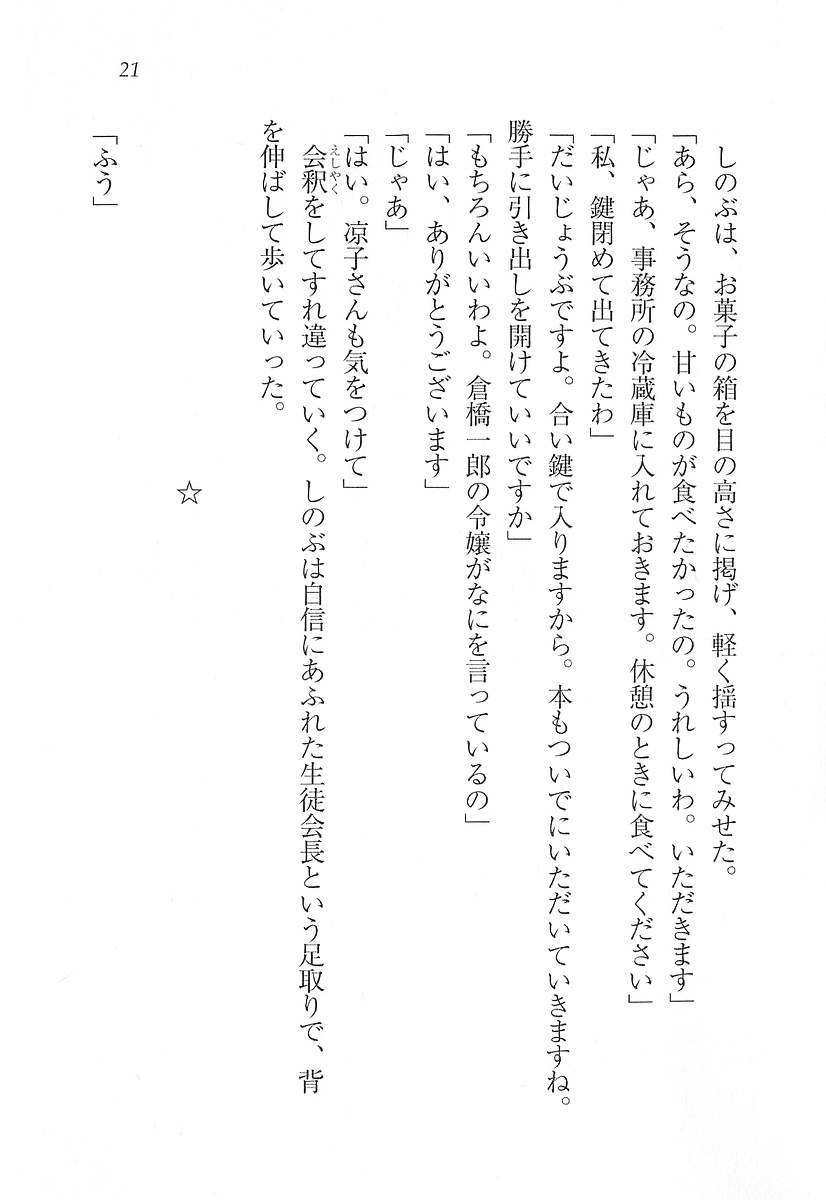 21
しのぶは、お菓子の箱を目の高さに掲げ、軽く揺すってみせた。
「あら、そうなの。甘いものが食べたかったの。うれしいわ。いただきます」
「じゃあ、事務所の冷蔵庫に入れておきます。休憩のときに食べてください」
「私、鍵閉めて出てきたわ」
「だいじょうぶですよ。合い鍵で入りますから。本もついでにいただいていきますね。
勝手に引き出しを開けていいですか」
「もちろんいいわよ。倉橋一郎の令嬢がなにを言っているの」
「はい、ありがとうございます」
「じゃあ」
「はい。凉子さんも気をつけて」
えしやく
会釈をしてすれ違っていく。しのぶは自信にあふれた生徒会長という足取りで、背
を伸ばして歩いていった。
☆
「ふう」